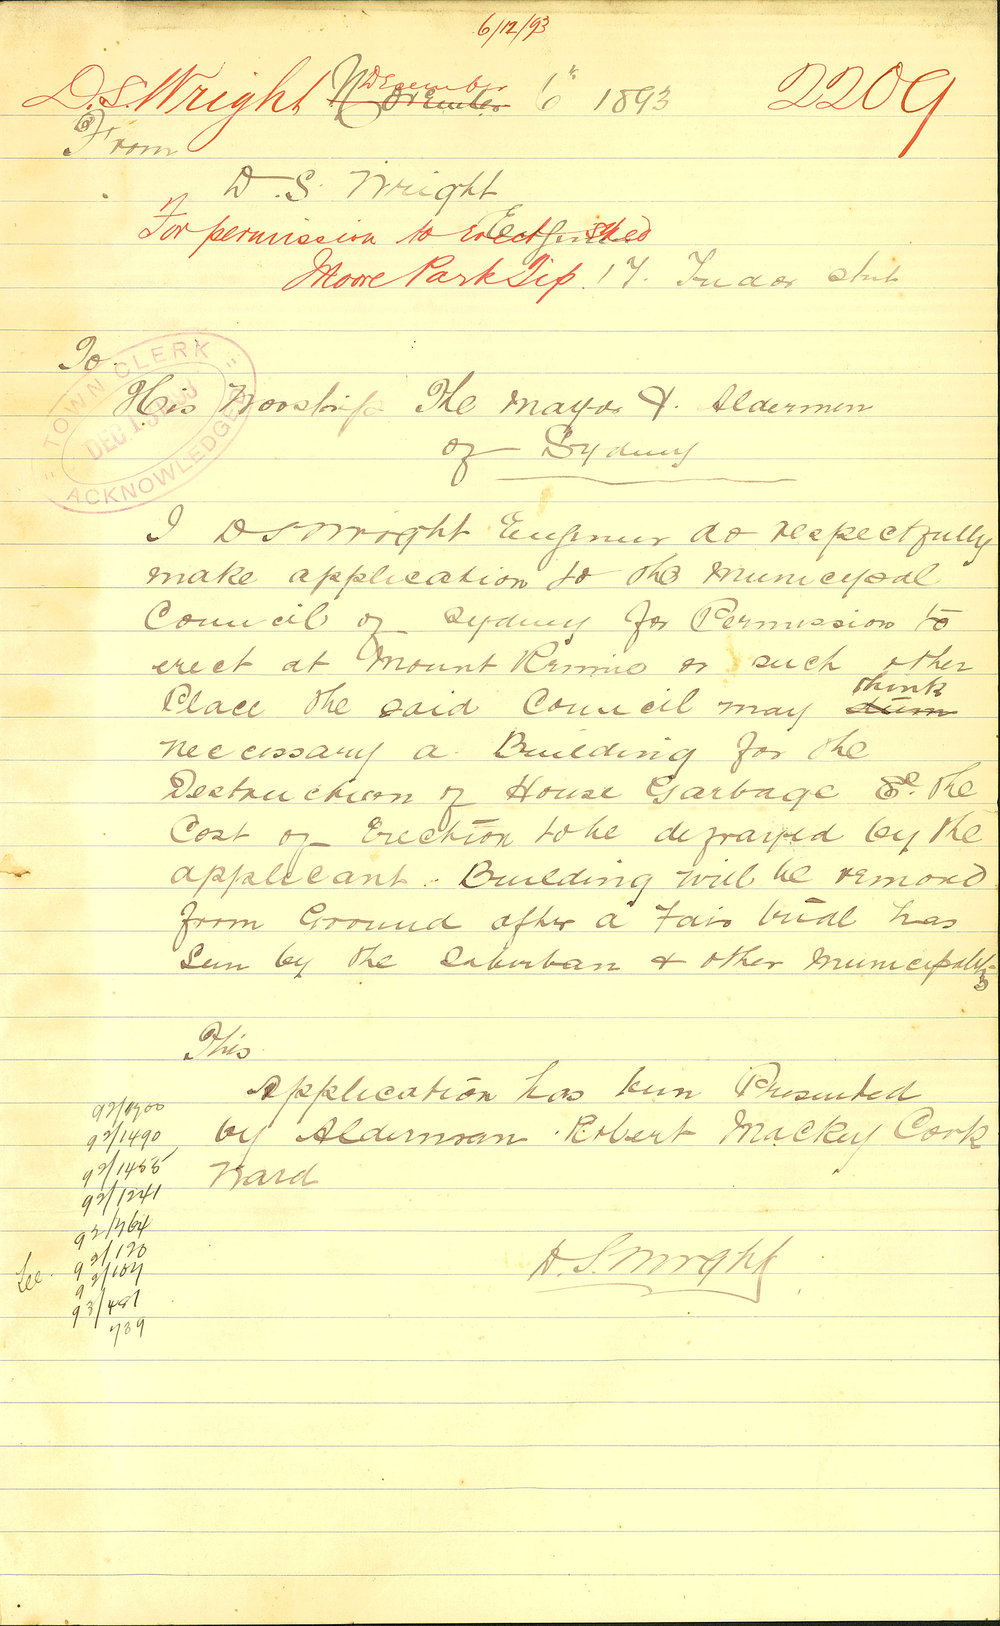 6/12/93
D. S. Wright December November 6th 1893 2209
From
D. S. Wright
For permission to erect Shed Engineer
Moore Park Tip. 17. Tudor
To
TOWN CLERK
DEC 1893
ACKNOWLEDGED
His Worship The Mayor & Aldermen
of Sydney
I D S Wright Engineer do respectfully
make application to the Municipal
Council of Sydney for Permission to
erect at Mount Rennie or such other
Place the said Council may deem think
necessary a Building for the
Destruction of House Garbage &c. The
Cost of Erection to be defrayed by the
applicant. Building will be removed
from Ground after a Fair trial has
been by the Suburban & other Municipalities
This
Application has been Presented
by Alderman Robert Mackey Cook
Ward
D. S. Wright
92/1490
92/1485
92/1241
92/764
92/120
92/107
See 93/487
789